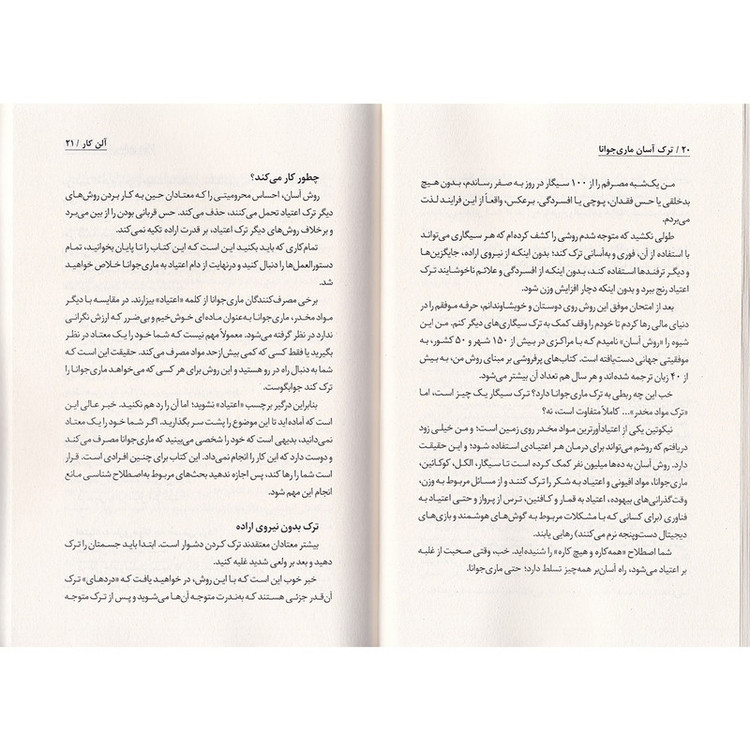 ۲۰ / ترک آسان ماری‌جوانا
من یک‌شبه مصرفم را از ۱۰۰ سیگار در روز به صفر رساندم، بدون هیچ
بدخلقی یا حس فقدان، پوچی یا افسردگی. برعکس، واقعاً از این فرایند لذت
می‌بردم.
طولی نکشید که متوجه شدم روشی را کشف کرده‌ام که هر سیگاری می‌تواند
با استفاده از آن، فوری و به‌آسانی ترک کند؛ بدون اینکه از نیروی اراده، جایگزین‌ها
و دیگر ترفندها استفاده کند، بدون اینکه از افسردگی و علائم ناخوشایند ترک
اعتیاد رنج ببرد و بدون اینکه دچار افزایش وزن شود.
بعد از امتحان موفق این روش روی دوستان و خویشاوندانم، حرفه موفقم در
دنیای مالی رها کردم تا خودم را وقف کمک به ترک سیگاری‌های دیگر کنم. من این
شیوه را «روش آسان» نامیدم که با مراکزی در بیش از ۱۵۰ شهر و ۵۰ کشور، به
موفقیتی جهانی دست‌یافته است. کتاب‌های پرفروشی بر مبنای روش من، به بیش
از ۴۰ زبان ترجمه شده‌اند و هر سال هم تعداد آن بیشتر می‌شود.
خب این چه ربطی به ترک ماری‌جوانا دارد؟ ترک سیگار یک چیز است، اما
«ترک مواد مخدر»... کاملاً متفاوت است، نه؟
نیکوتین یکی از اعتیادآورترین مواد مخدر روی زمین است؛ و من خیلی زود
دریافتم که روشم می‌تواند برای درمان هر اعتیادی استفاده شود؛ و این حقیقت
دارد. روش آسان به ده‌ها میلیون نفر کمک کرده است تا سیگار، الکل، کوکائین،
ماری‌جوانا، مواد افیونی و اعتیاد به شکر را ترک کنند و از مسائل مربوط به وزن،
وقت‌گذرانی‌های بیهوده، اعتیاد به قمار و کافئین، ترس از پرواز و حتی اعتیاد به
فناوری (برای کسانی که با مشکلات مربوط به گوش‌های هوشمند و بازی‌های
دیجیتال دست‌وپنجه نرم می‌کنند) رهایی یابند.
شما اصطلاح «همه‌کاره و هیچ کاره» را شنیده‌اید. خب، وقتی صحبت از غلبه
بر اعتیاد می‌شود، راه آسان‌بر همه‌چیز تسلط دارد؛ حتی ماری‌جوانا.
آلن کار / ۲۱
چطور کار می‌کند؟
روش آسان، احساس محرومیتی را که معتادان حین به کار بردن روش‌های
دیگر ترک اعتیاد تحمل می‌کنند، حذف می‌کند. حس قربانی بودن را از بین می‌برد
و برخلاف روش‌های دیگر ترک اعتیاد، بر قدرت اراده تکیه نمی‌کند.
تمام‌کاری که باید بکنید این است که این کتاب را تا پایان بخوانید، تمام
دستورالعمل‌ها را دنبال کنید و درنهایت از دام اعتیاد به ماری‌جوانا خلاص خواهید
شد.
برخی مصرف‌کنندگان ماری‌جوانا از کلمه «اعتیاد» بیزارند. در مقایسه با دیگر
مواد مخدر، ماری‌جوانا به‌عنوان ماده‌ای خوش‌خیم و بی‌ضرر که ارزش نگرانی
ندارد در نظر گرفته می‌شود. معمولاً مهم نیست که شما خود را یک معتاد در نظر
بگیرید یا فقط کسی که کمی بیش‌ازحد مواد مصرف می‌کند. حقیقت این است که
شما به دنبال راه در رو هستید و این روش برای هر کسی که می‌خواهد ماری‌جوانا را
ترک کند جوابگوست.
بنابراین درگیر برچسب «اعتیاد» نشوید؛ اما آن را رد هم نکنید. خبر عالی این
است که آماده اید تا این موضوع را پشت سر بگذارید. اگر شما خود را یک معتاد
نمی‌دانید، بدیهی است که خود را شخصی می‌بینید که ماری‌جوانا مصرف می‌کند
و دوست دارد که این کار را انجام نمی‌داد. این کتاب برای چنین افرادی است. قرار
است شما را رها کند، پس اجازه ندهید بحث‌های مربوط به‌اصطلاح شناسی مانع
انجام این مهم شود.
ترک بدون نیروی اراده
بیشتر معتادان معتقدند ترک کردن دشوار است. ابتدا باید جسمتان را ترک
دهید و بعد بر ولعی شدید غلبه کنید.
خبر خوب این است که با این روش، در خواهید یافت که «دردهای» ترک
آن‌قدر جزئی هستند که به‌ندرت متوجه آن‌ها می‌شوید و پس از ترک متوجه